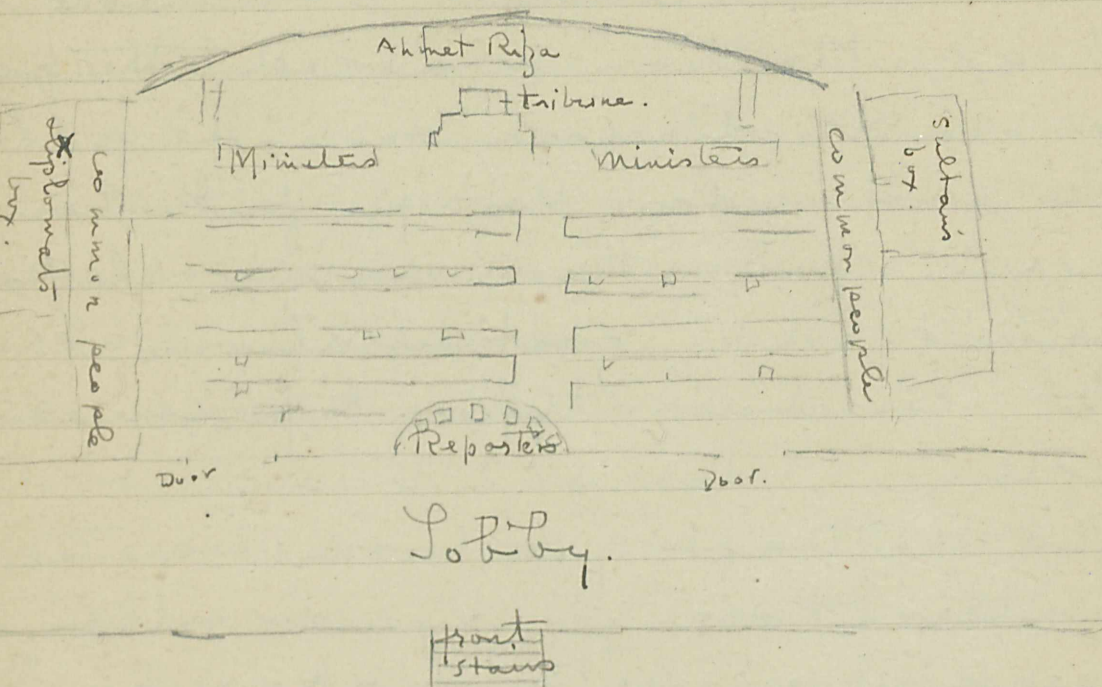 Ahmet Riza
tribune.
Ministers
Ministers
common people
diplomats
box.
common people
Sultan's
box.
Reporters
Door
Door.
Lobby.
front
stairs